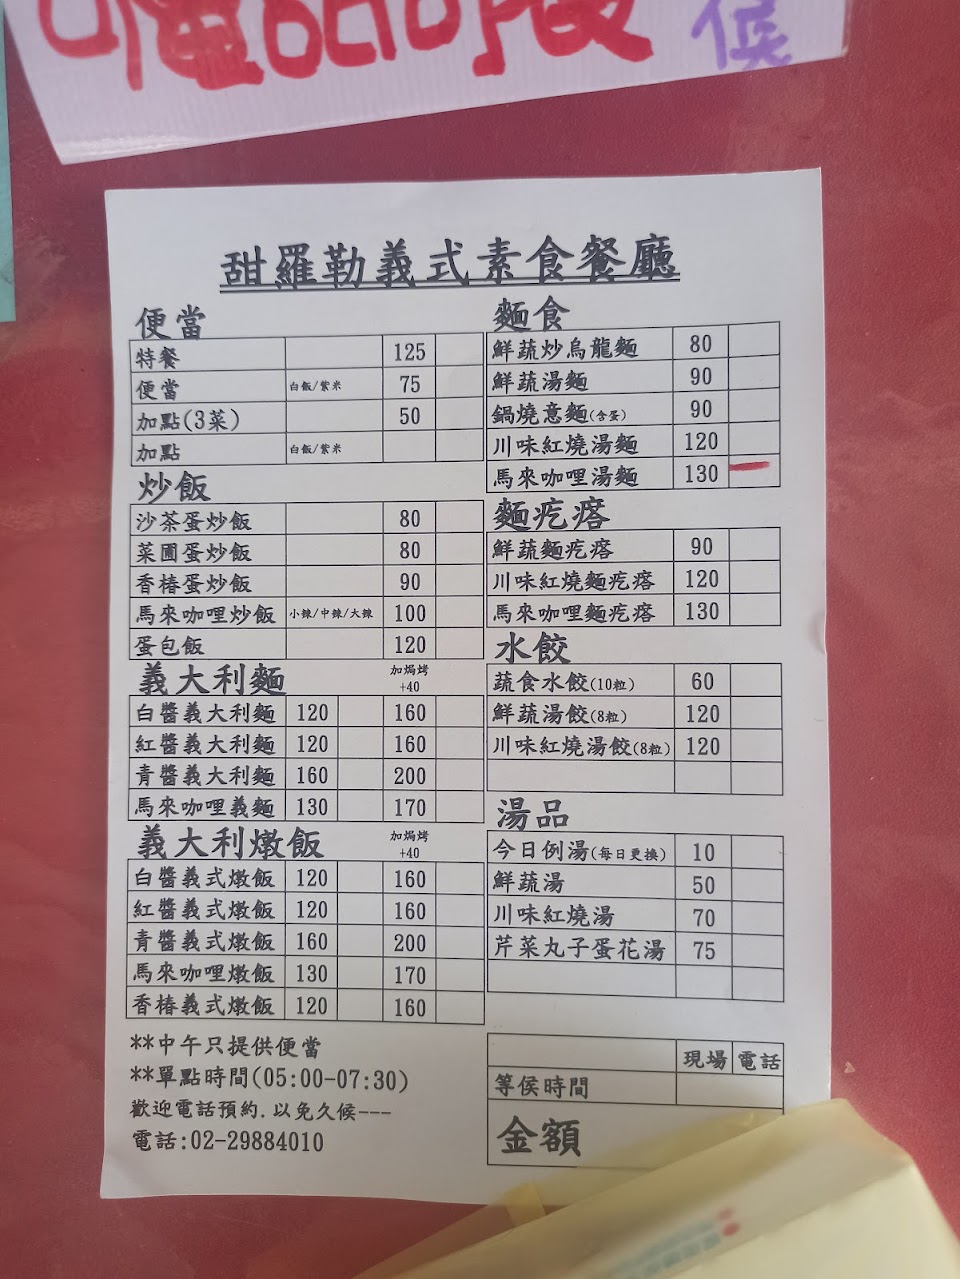 候
甜羅勒義式素食餐廳
便當
特餐 125
便當 白飯/紫米 75
加點(3菜) 50
加點 白飯/紫米
炒飯
沙茶蛋炒飯 80
菜圃蛋炒飯 80
香椿蛋炒飯 90
馬來咖哩炒飯 小辣/中辣/大辣 100
蛋包飯 120
義大利麵 加焗烤 +40
白醬義大利麵 120 160
紅醬義大利麵 120 160
青醬義大利麵 160 200
馬來咖哩義麵 130 170
義大利燉飯 加焗烤 +40
白醬義式燉飯 120 160
紅醬義式燉飯 120 160
青醬義式燉飯 160 200
馬來咖哩燉飯 130 170
香椿義式燉飯 120 160
**中午只提供便當
**單點時間(05:00-07:30)
歡迎電話預約.以免久候---
電話:02-29884010
麵食
鮮蔬炒烏龍麵 80
鮮蔬湯麵 90
鍋燒意麵(含蛋) 90
川味紅燒湯麵 120
馬來咖哩湯麵 130
麵疙瘩
鮮蔬麵疙瘩 90
川味紅燒麵疙瘩 120
馬來咖哩麵疙瘩 130
水餃
蔬食水餃(10粒) 60
鮮蔬湯餃(8粒) 120
川味紅燒湯餃(8粒) 120
湯品
今日例湯(每日更換) 10
鮮蔬湯 50
川味紅燒湯 70
芹菜丸子蛋花湯 75
現場 電話
等侯時間
金額